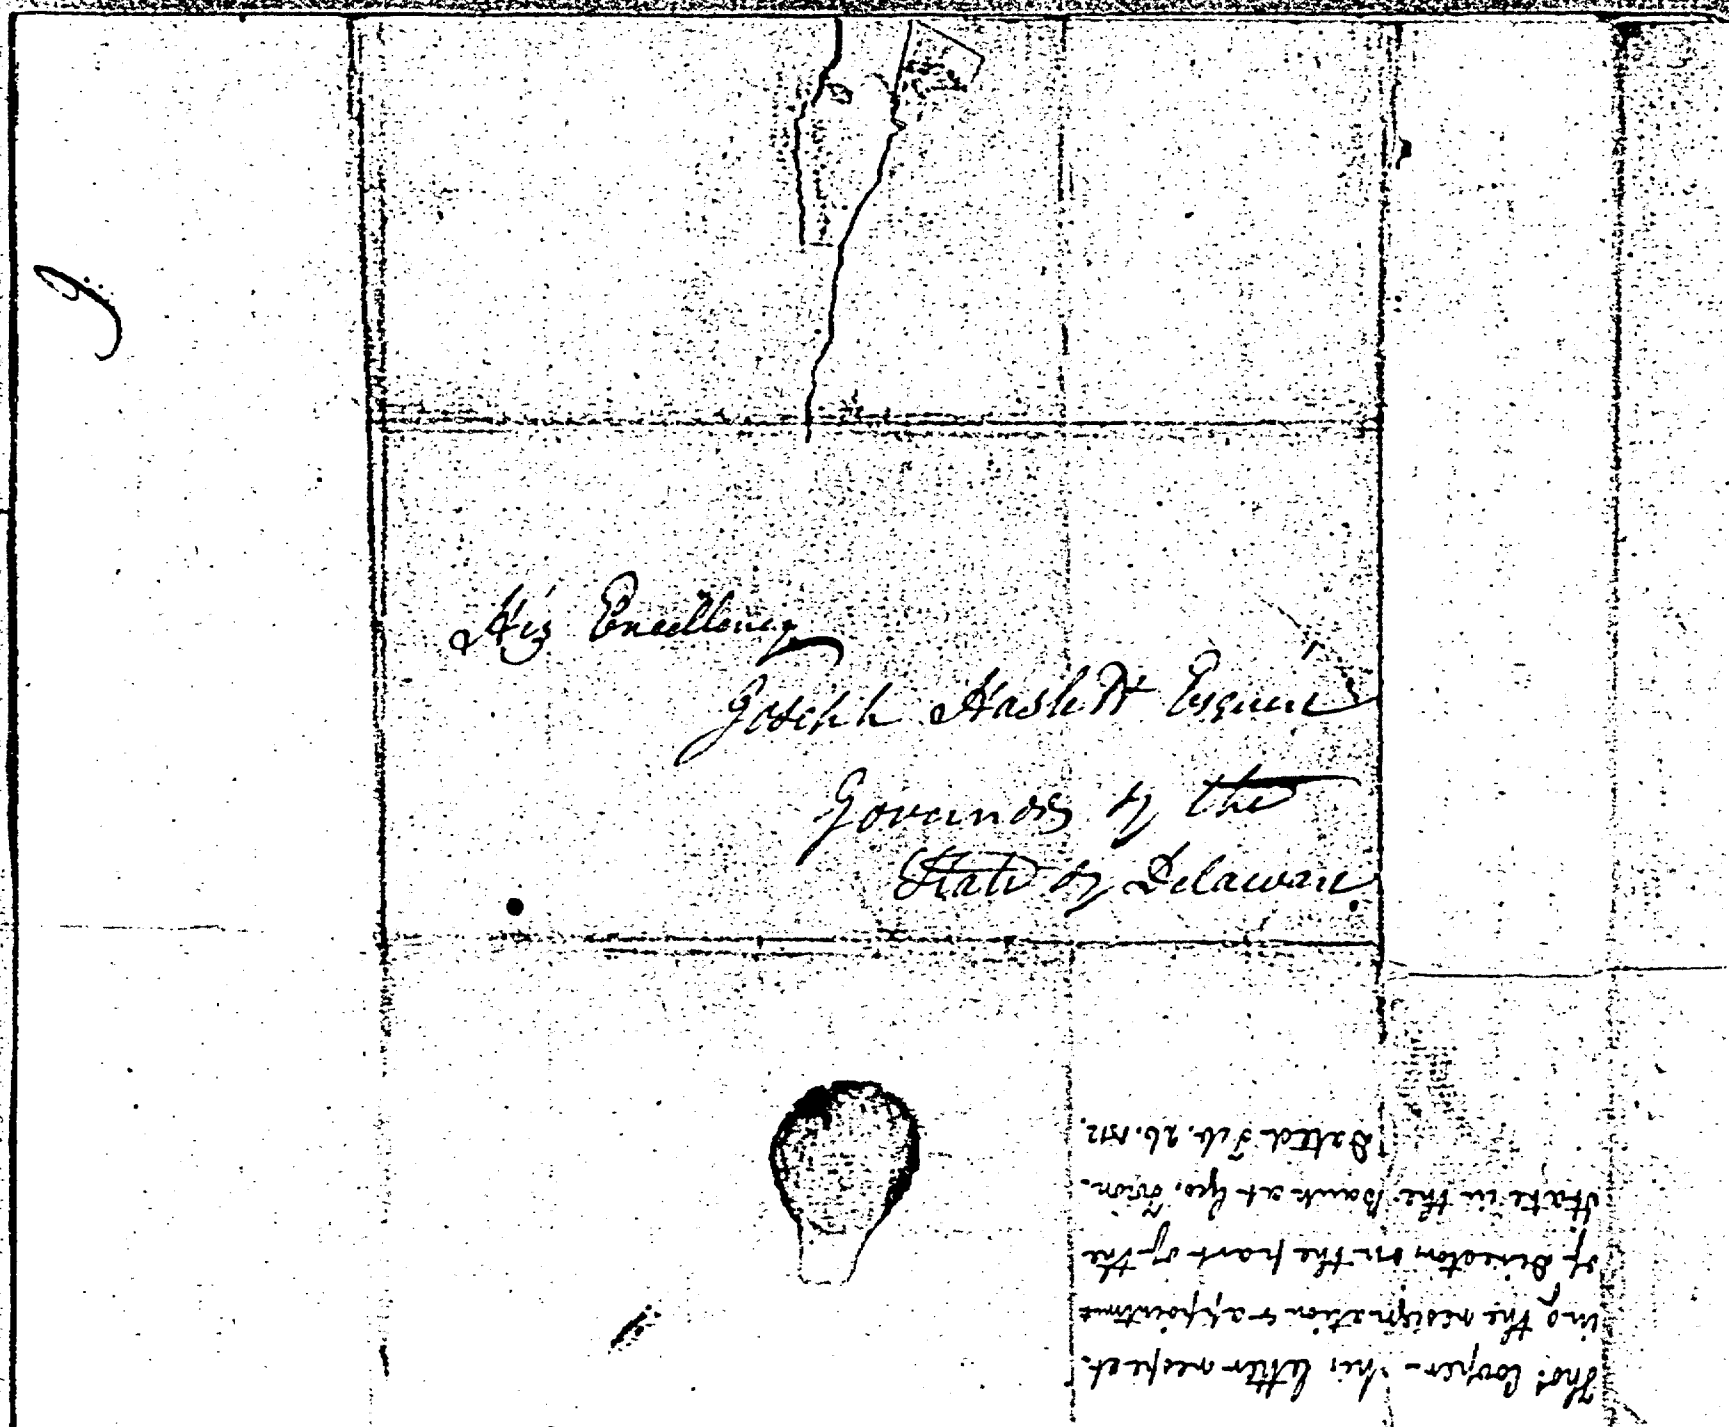 His Excellency
Joseph Haslett Esquire
Governor of the
State of Delaware
Thos. Cooper – his letter respect-
ing the resignation & appointment
of Director on the part of the
State in the Bank at Geo. Town.
Dated Feb. 26. 1812.